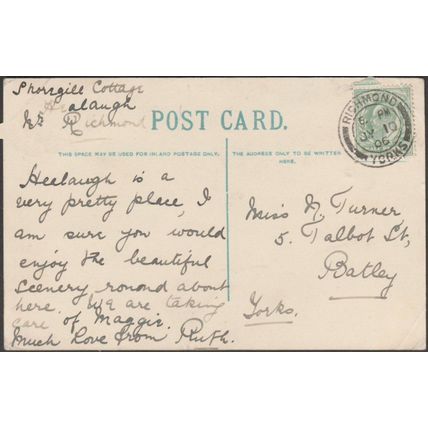 Shoregill Cottage
Healaugh
Nr Richmond
POST CARD.
THIS SPACE MAY BE USED FOR INLAND POSTAGE ONLY.
THE ADDRESS ONLY TO BE WRITTEN
HERE.
RICHMOND
PM
JY 10
06
YORKS
Healaugh is a
very pretty place, I
am sure you would
enjoy the beautiful
scenery round about
here. We are taking
care of Maggie.
Much Love from Ruth.
Miss N. Turner
5. Talbot St,
Batley
Yorks.